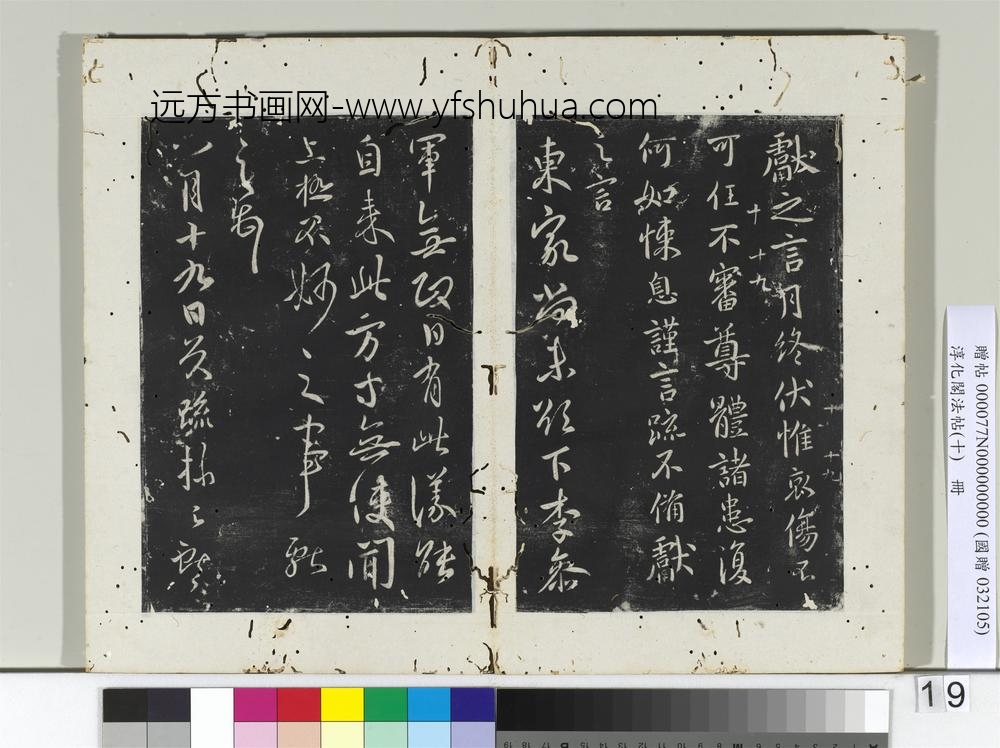 远方书画网-www.yfshuhua.com
獻之言月終伏惟哀傷不
十 十九
可任不審尊體諸患復
何如悚息謹言疏不備獻
之言
十九
東家尚未下李參
軍無日有此議
自来此方寸無使聞
上極不之事獻
之
八月十九日疏
贈帖 000077N000000000 (國贈 032105)
淳化閣法帖(十) 冊
19